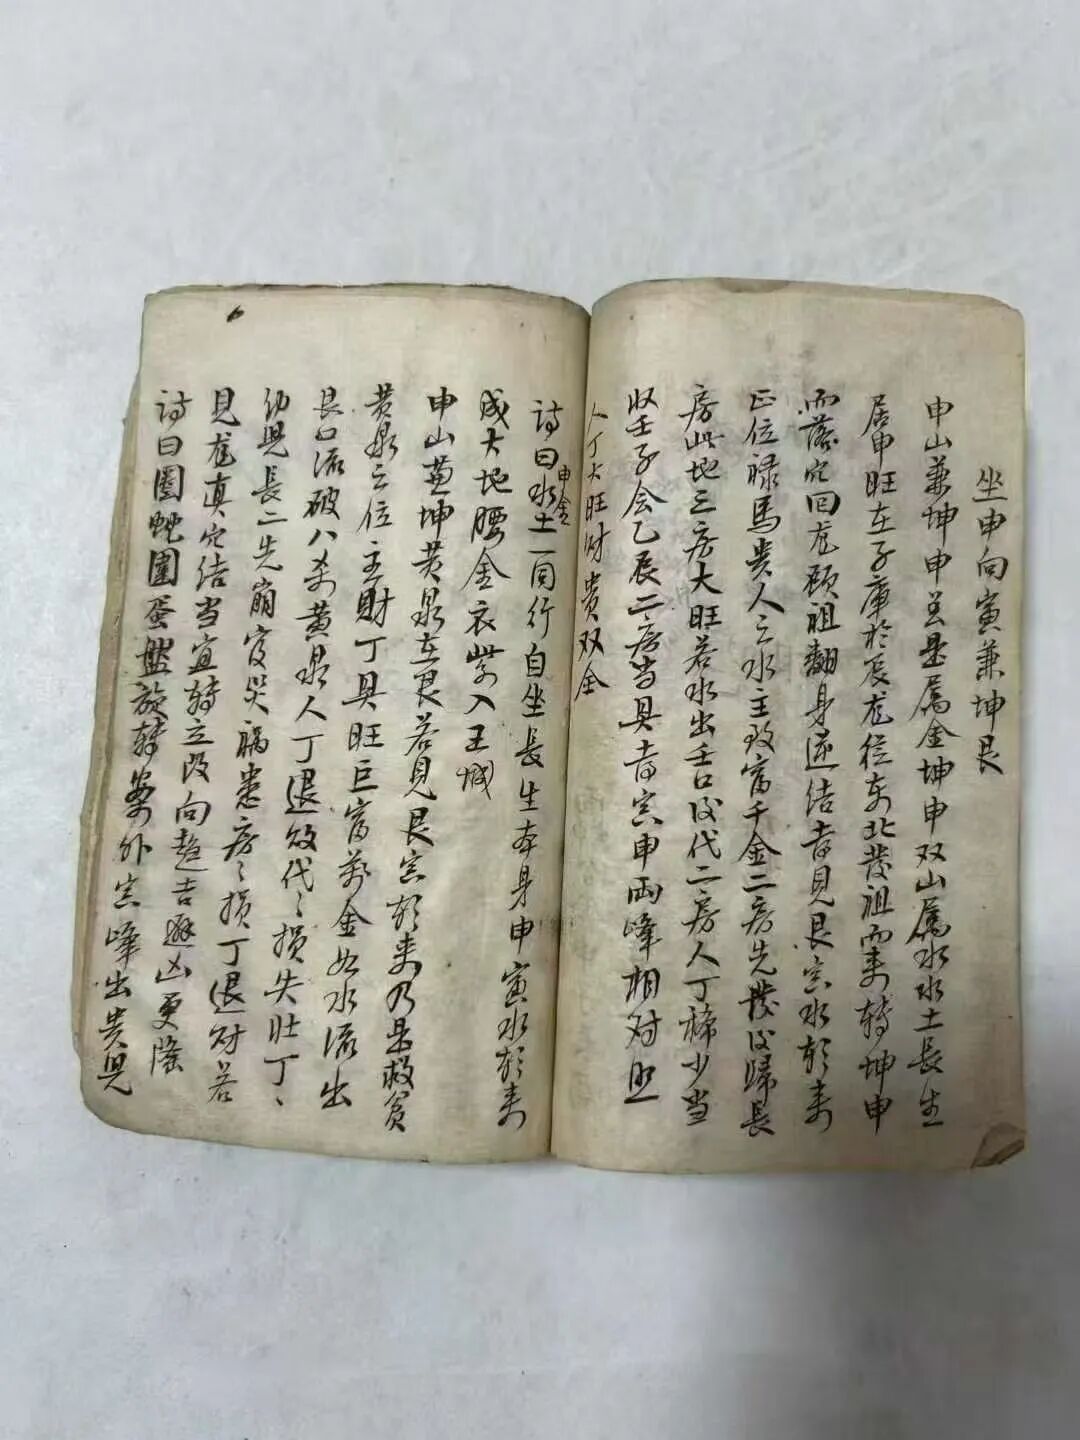 坐申向寅兼坤艮
申山兼坤申呈是属金坤申双山属水水土長生
居申旺在子庫於辰龙從东北發祖而來轉坤申
而落穴回龙顾祖翻身逆结者見艮寅水朝來
正位禄馬贵人之水主致富千金二房先發後歸長
房此地三房大旺若水出壬口後代二房人丁稀少当
收壬子会乙辰二房当具者寅申两峰相对照
人丁大旺财贵双全
诗曰水土一同行自坐長生本身申寅水朝來
申金
成大地腰金衣紫入王城
申山兼坤黄泉在艮若見艮寅朝來乃是救贫
黄泉之位主財丁具旺巨富萬金如水流出
艮口流破八杀黄泉人丁退败代〻损失壮丁〻
幼児長二先崩後哭祸患房〻损丁退财若
見龙真穴结当宜转立改向趋吉避凶更隆
诗曰團蛇團蛋盤旋转案外寅峰出贵児